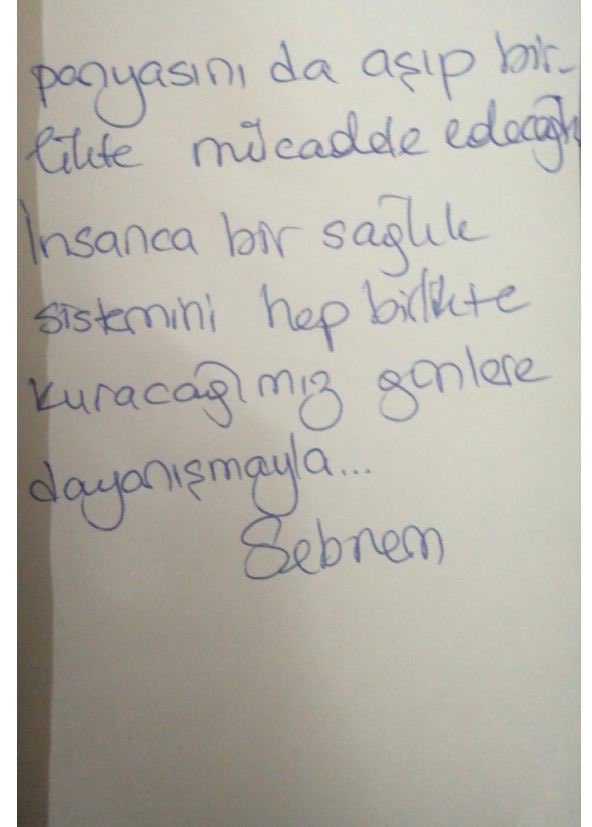 panyasını da aşıp bir-
likte mücadele edeceğiz
İnsanca bir sağlık
sistemini hep birlikte
kuracağımız günlere
dayanışmayla...
Şebnem